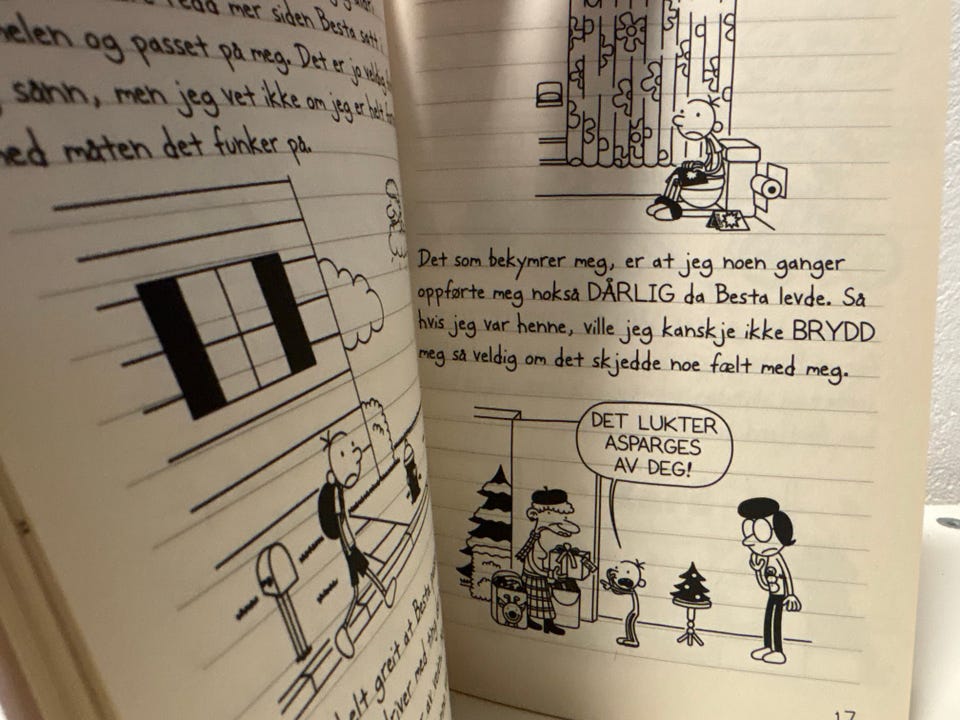 mer siden Besta satt i
og passet på meg. Det er jo veldig
sånn, men jeg vet ikke om jeg er helt
måten det funker på.
greit at Besta
med
av
Det som bekymrer meg, er at jeg noen ganger
oppførte meg nokså DÅRLIG da Besta levde. Så
hvis jeg var henne, ville jeg kanskje ikke BRYDD
meg så veldig om det skjedde noe fælt med meg.
DET LUKTER
ASPARGES
AV DEG!
17